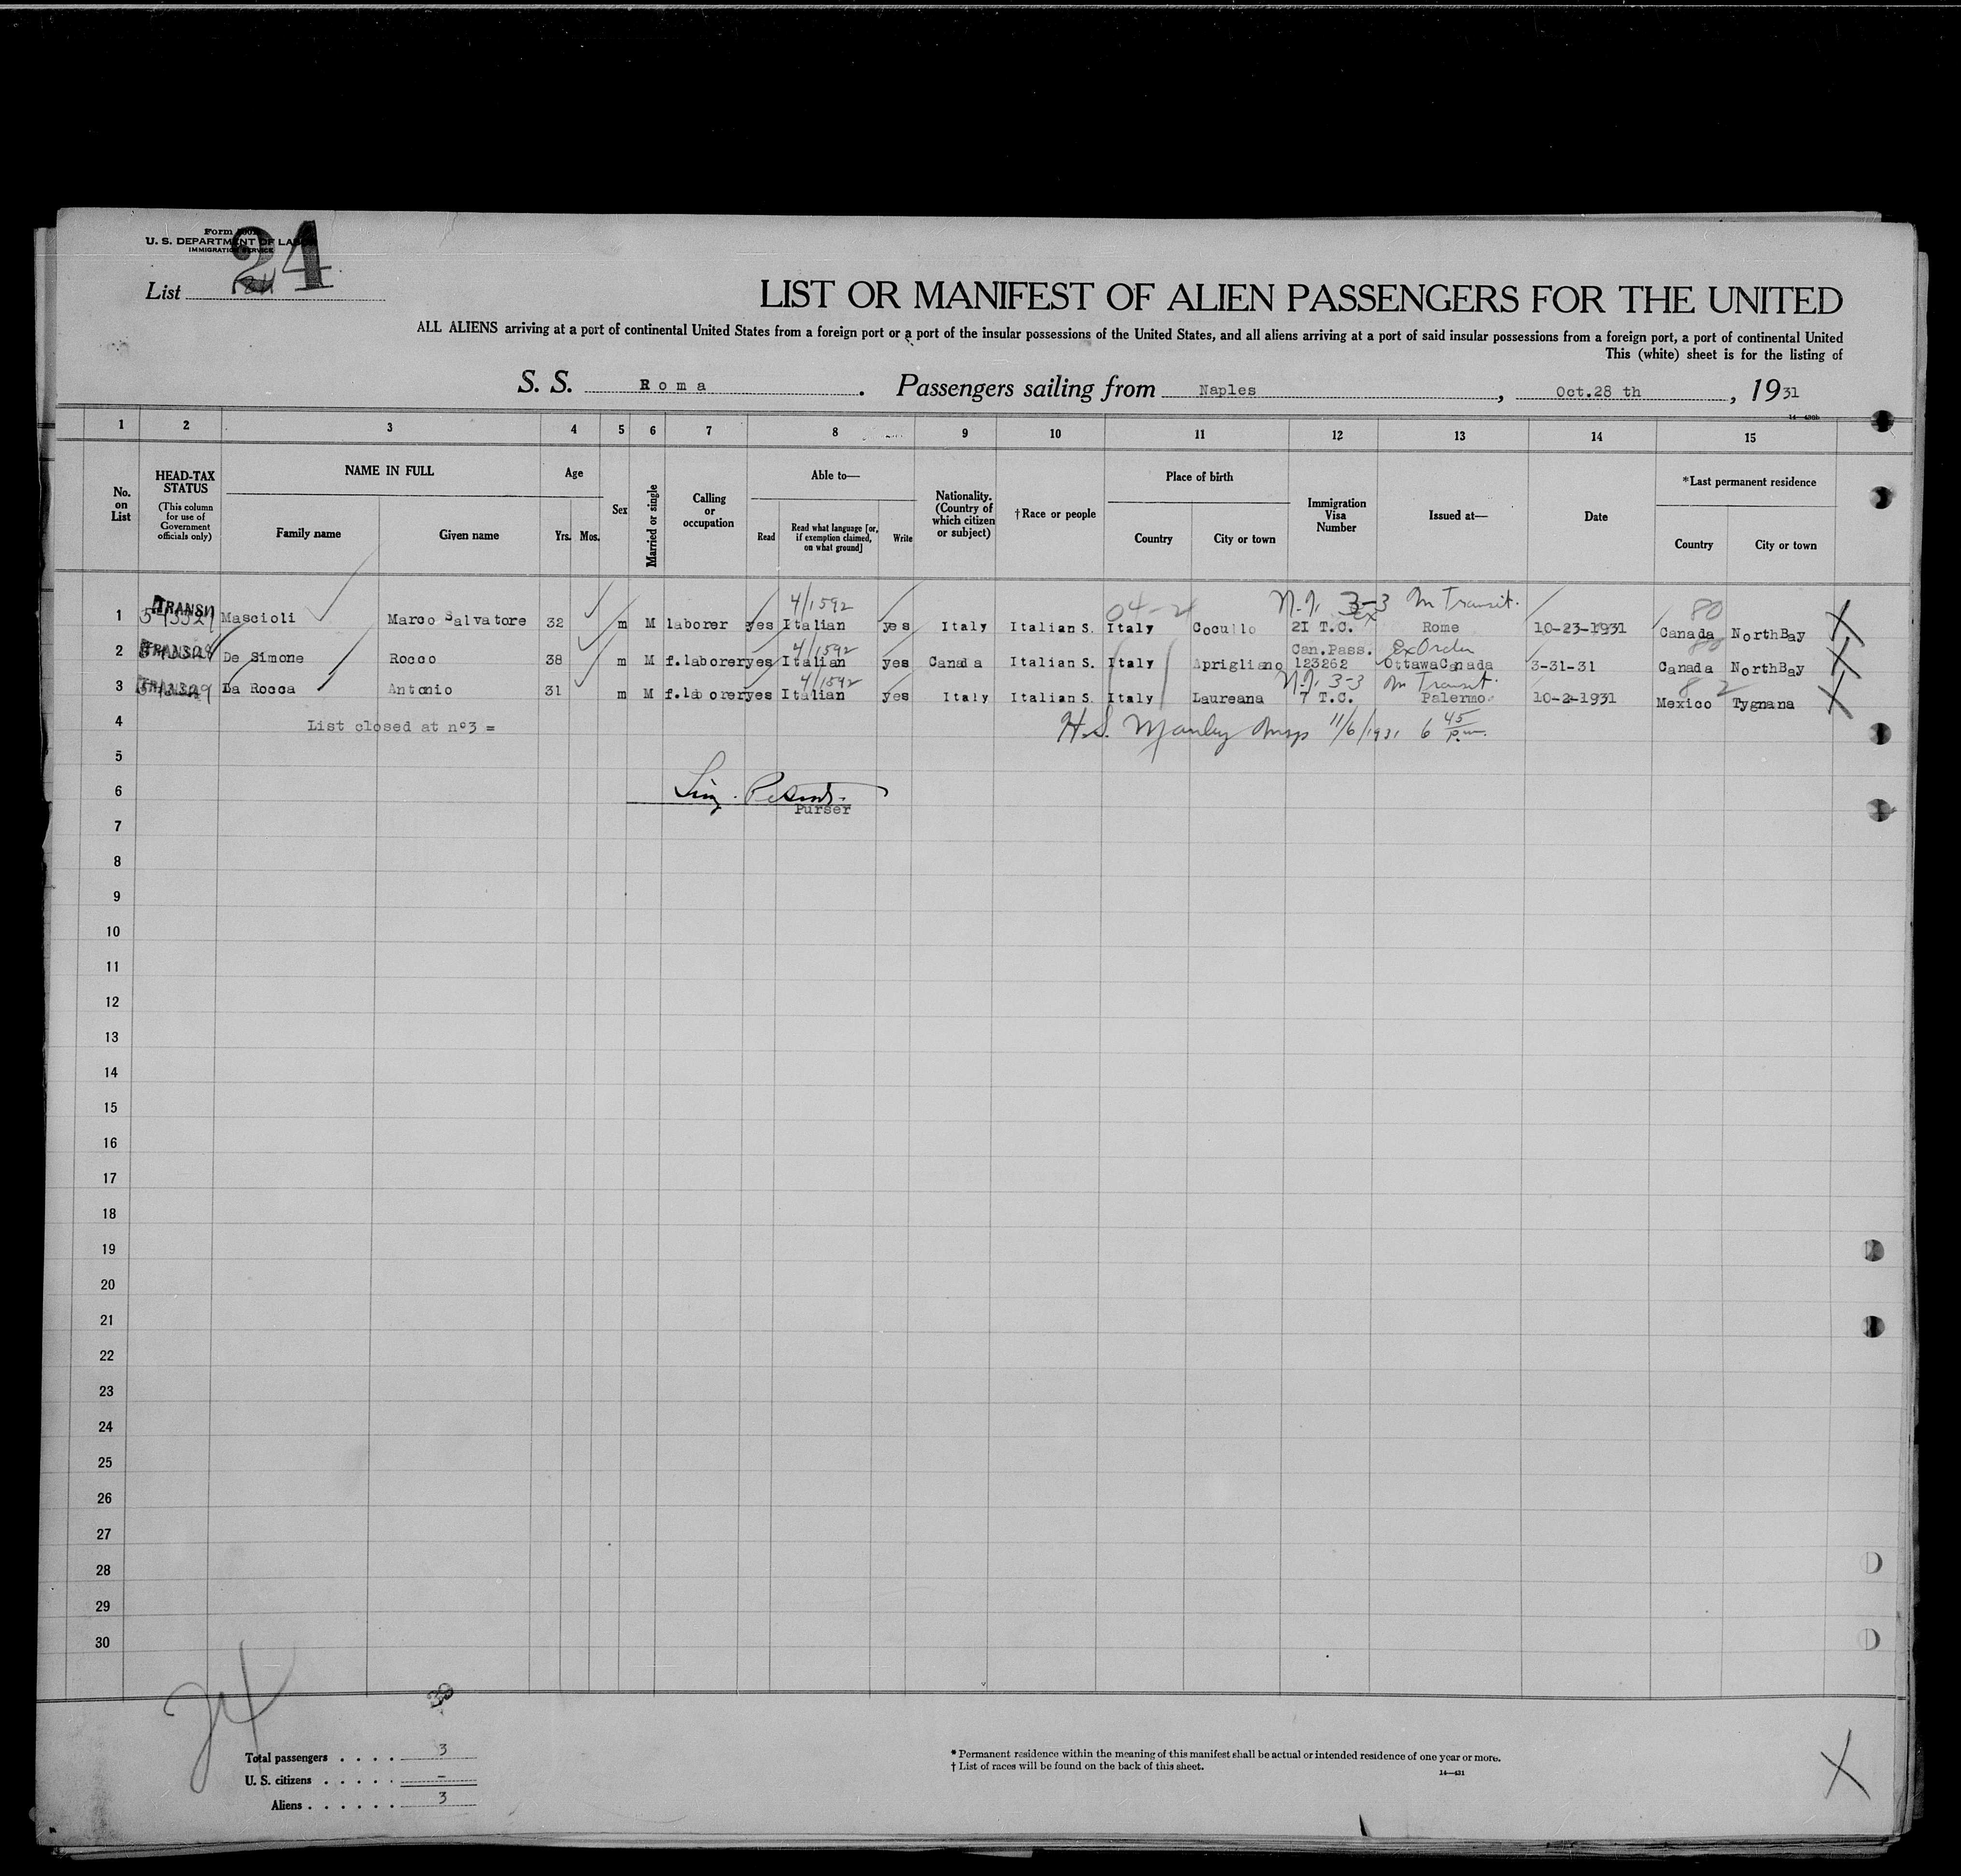 Form
U. S. DEPARTMENT OF LABOR
IMMIGRATION SERVICE
24
List
LIST OR MANIFEST OF ALIEN PASSENGERS FOR THE UNITED
ALL ALIENS arriving at a port of continental United States from a foreign port or a port of the insular possessions of the United States, and all aliens arriving at a port of said insular possessions from a foreign port, a port of continental United
This (white) sheet is for the listing of
S. S. Roma. Passengers sailing from Naples, Oct.28 th, 1931
14—430b
1 2 3 4 5 6 7 8 9 10 11 12 13 14 15
No. on List
HEAD-TAX STATUS (This column for use of Government officials only)
NAME IN FULL Family name Given name
Age Yrs. Mos.
Sex
Married or single
Calling or occupation
Able to— Read Read what language [or, if exemption claimed, on what ground] Write
Nationality. (Country of which citizen or subject)
†Race or people
Place of birth Country City or town
Immigration Visa Number
Issued at—
Date
*Last permanent residence Country City or town
4/1592 N.I. 3-3 In Transit. 80
1 TRANSIT 543329 Mascioli Marco Salvatore 32 m M laborer yes Italian yes Italy Italian S. Italy Cocullo 21 T.C. Rome 10-23-1931 Canada NorthBay X
4/1592 Can.Pass. Ex Order 80
2 TRANSIT De Simone Rocco 38 m M f.laborer yes Italian yes Canada Italian S. Italy Aprigliano 123262 OttawaCanada 3-31-31 Canada NorthBay X
4/1592 N.I. 3-3 In Transit. 8 2
3 TRANSIT La Rocca Antonio 31 m M f.laborer yes Italian yes Italy Italian S. Italy Laureana 7 T.C. Palermo 10-2-1931 Mexico Tygnana X
4 List closed at nº3 = H.S. Manley Insp 11/6/1931 6 45 p.m.
5
6
Purser
7
8
9
10
11
12
13
14
15
16
17
18
19
20
21
22
23
24
25
26
27
28
29
30
24
Total passengers . . . . 3
U. S. citizens . . . . . –
Aliens . . . . . . 3
* Permanent residence within the meaning of this manifest shall be actual or intended residence of one year or more.
† List of races will be found on the back of this sheet.
14—431
X